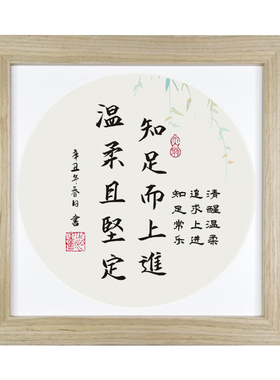 清醒温柔
追求上进
知足常乐
知足而上進
温柔且堅定
辛丑年春日書